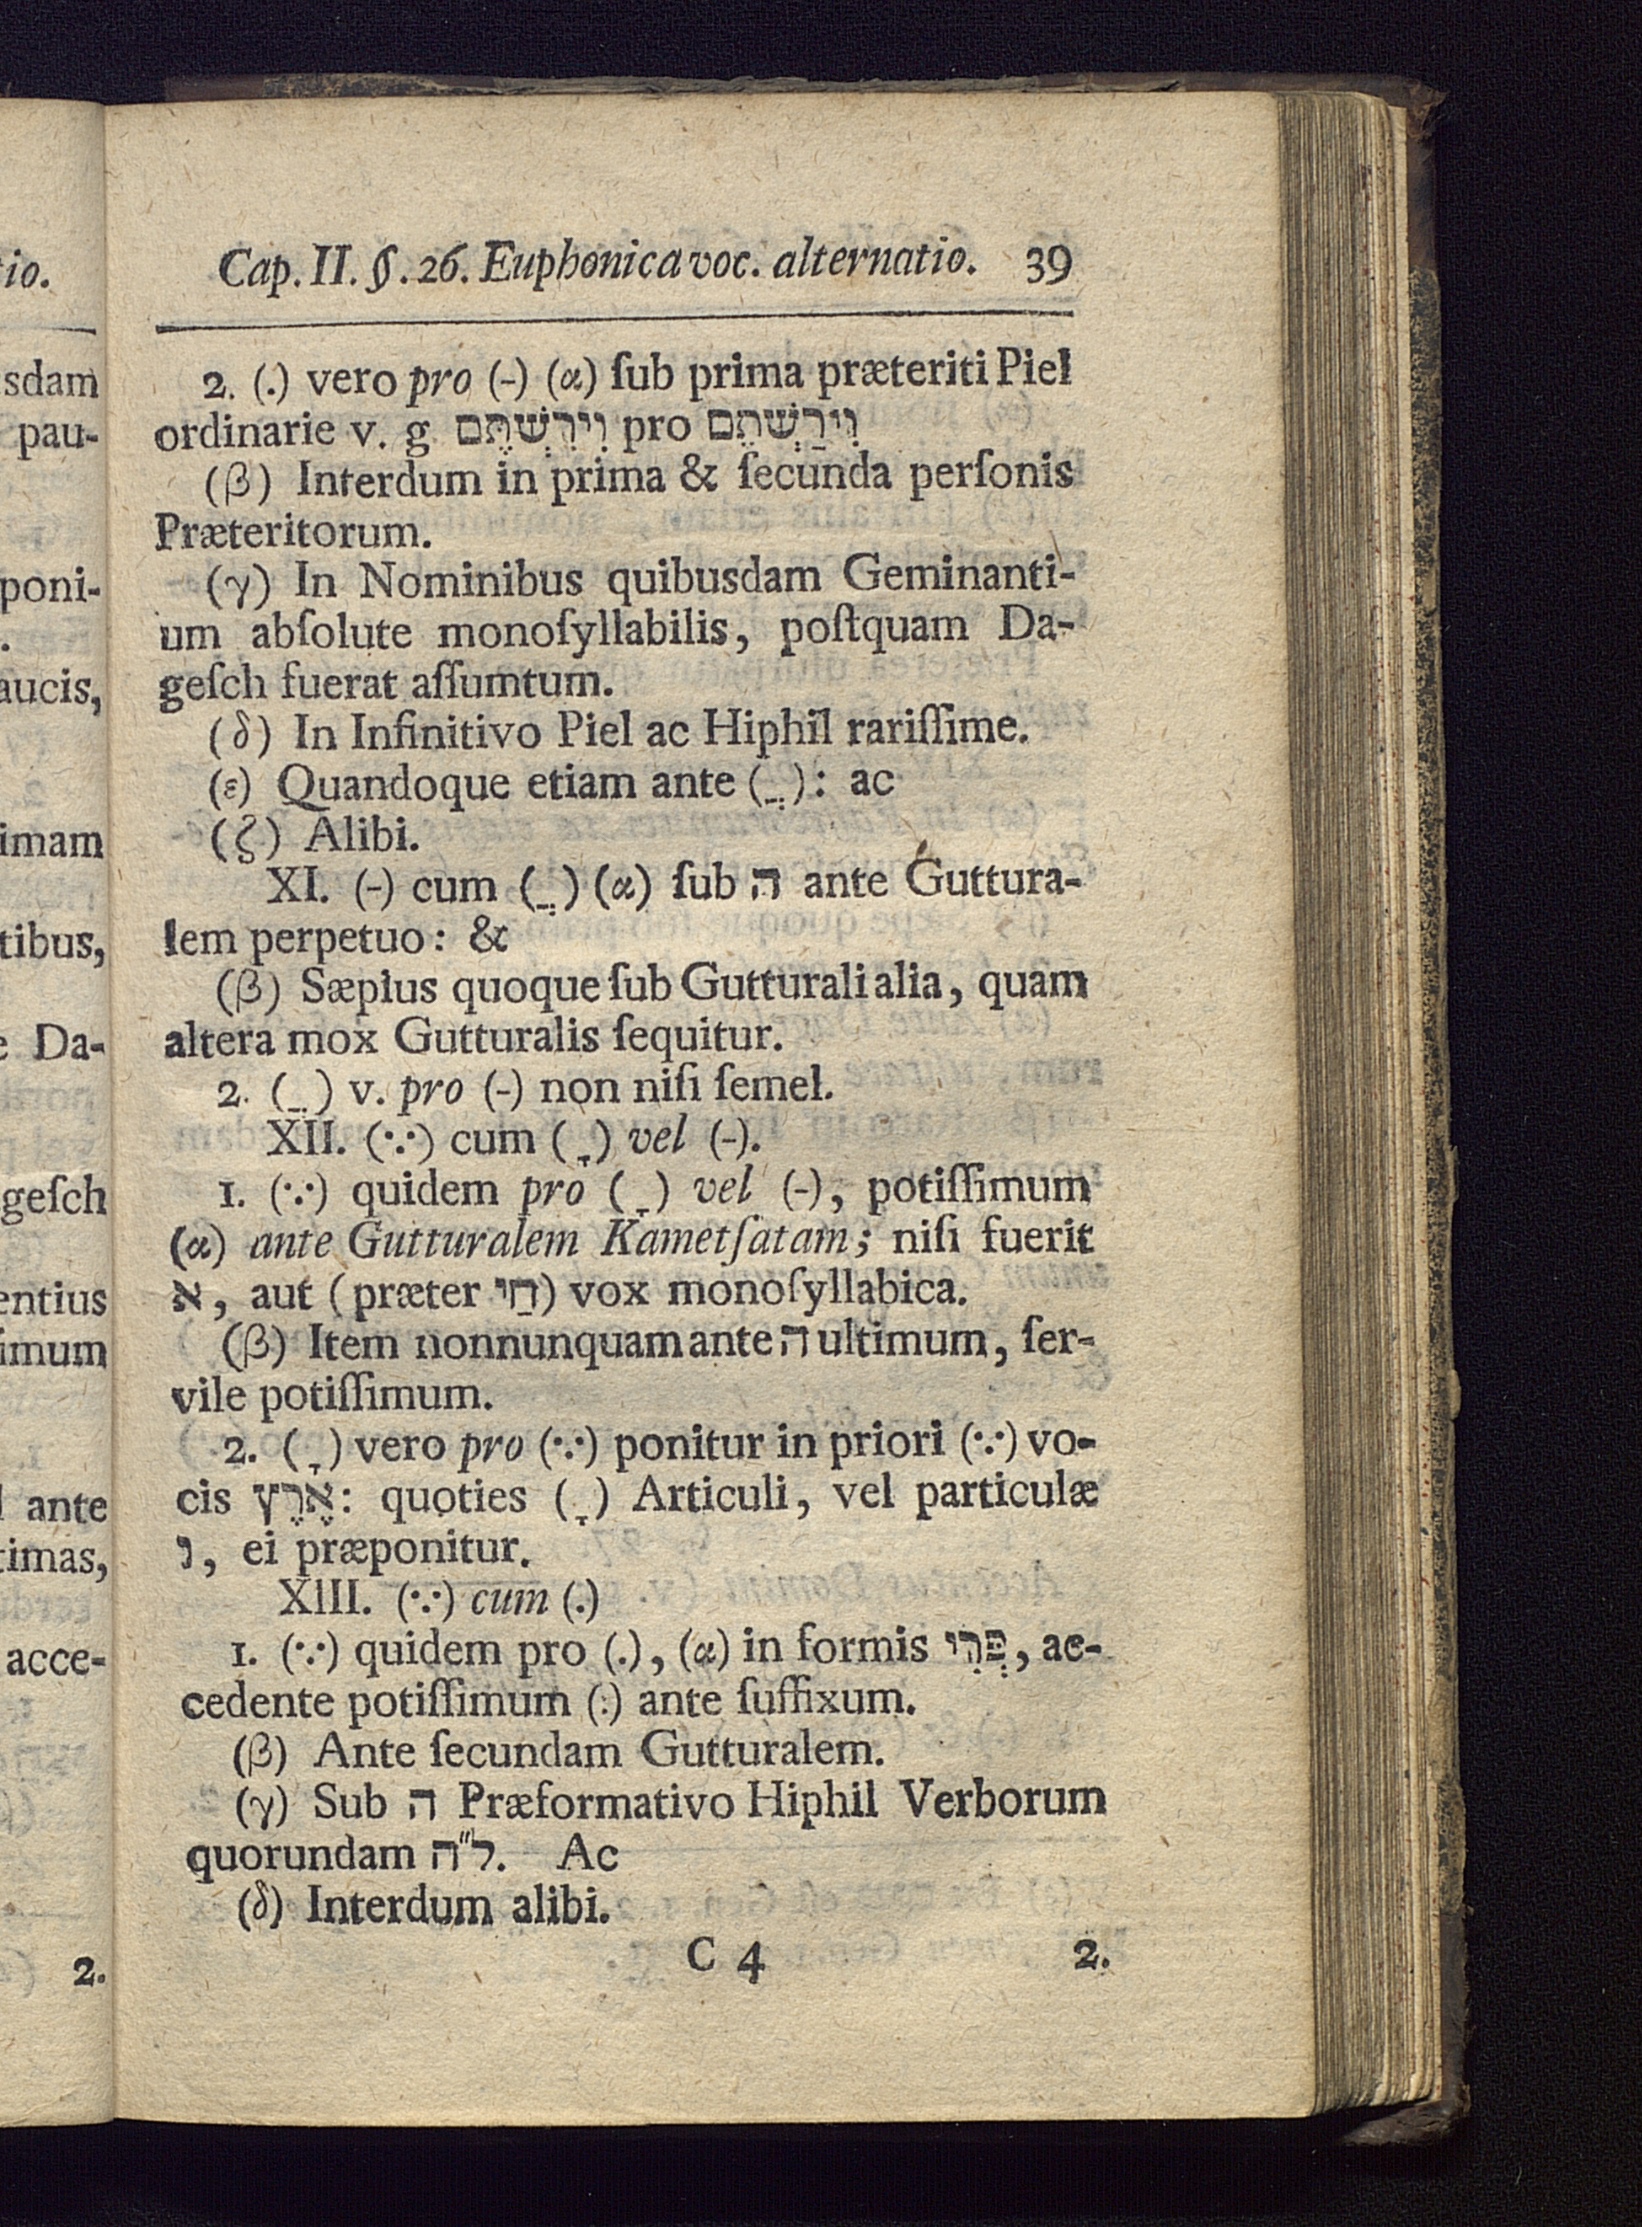 Cap. II. §. 26. Euphonica voc. alternatio. 39
2. (.) vero pro (-) (α) ſub prima præteriti Piel
ordinarie v. g וִירִשְׁתֶּם pro וִירַשְׁתֶּם
(β) Interdum in prima & ſecunda perſonis
Præteritorum.
(γ) In Nominibus quibusdam Geminanti-
um abſolute monoſyllabilis, poſtquam Da-
geſch fuerat aſſumtum.
(δ) In Infinitivo Piel ac Hiphil rariſſime.
(ε) Quandoque etiam ante (ֲ): ac
(ζ) Alibi.
XI. (-) cum (ֲ) (α) ſub ה ante Guttura-
lem perpetuo: &
(β) Sæpius quoque ſub Gutturali alia, quam
altera mox Gutturalis ſequitur.
2. (ֲ) v. pro (-) non niſi ſemel.
XII. (∵) cum (ָ) vel (-).
1. (∵) quidem pro (ָ) vel (-), potiſſimum
(α) ante Gutturalem Kametſatam; niſi fuerit
א, aut (præter חַי) vox monoſyllabica.
(β) Item nonnunquam ante ה ultimum, ſer-
vile potiſſimum.
2. (ָ) vero pro (∵) ponitur in priori (∵) vo-
cis אֶרֶץ: quoties (ָ) Articuli, vel particulæ
ו, ei præponitur.
XIII. (∵) cum (.)
1. (∵) quidem pro (.), (α) in formis פְּרִי, ac-
cedente potiſſimum (:) ante ſuffixum.
(β) Ante ſecundam Gutturalem.
(γ) Sub ה Præformativo Hiphil Verborum
quorundam ל״ה. Ac
(δ) Interdum alibi.
C 4 2.
io.
sdam
pau-
poni-
.
aucis,
imam
tibus,
e Da-
geſch
entius
imum
ante
timas,
acce-
2.